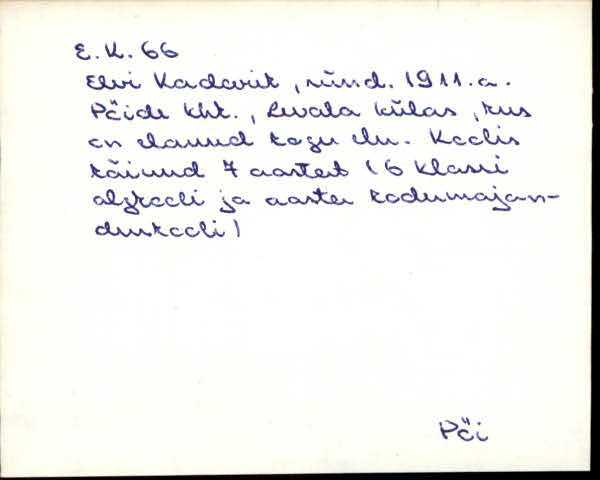 E. K. 66
Elvi Kadarik, sünd. 1911. a.
Pöide khk., Levala külas, kus
on elanud kogu elu. Koolis
käinud 7 aastat (6 klassi
algkooli ja aasta kodumajan-
duskooli)
Pöi